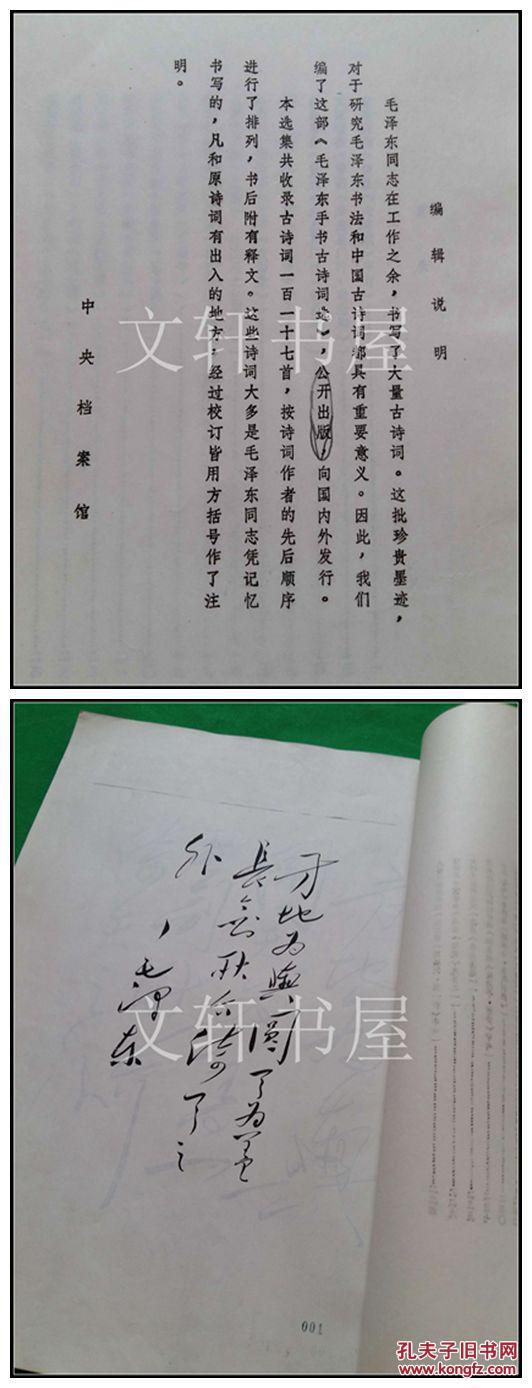 编辑说明
毛泽东同志在工作之余，书写了大量古诗词。这批珍贵墨迹，
对于研究毛泽东书法和中国古诗词都具有重要意义。因此，我们
编了这部《毛泽东手书古诗词选》，公开出版，向国内外发行。
本选集共收录古诗词一百一十七首，按诗词作者的先后顺序
进行了排列，书后附有释文。这些诗词大多是毛泽东同志凭记忆
书写的，凡和原诗词有出入的地方，经过校订皆用方括号作了注
明。
中央档案馆
文轩书屋
方地为舆圆天为盖
長剑耿介倚天之
外
毛泽东
文轩书屋
001
孔夫子旧书网
www.kongfz.com